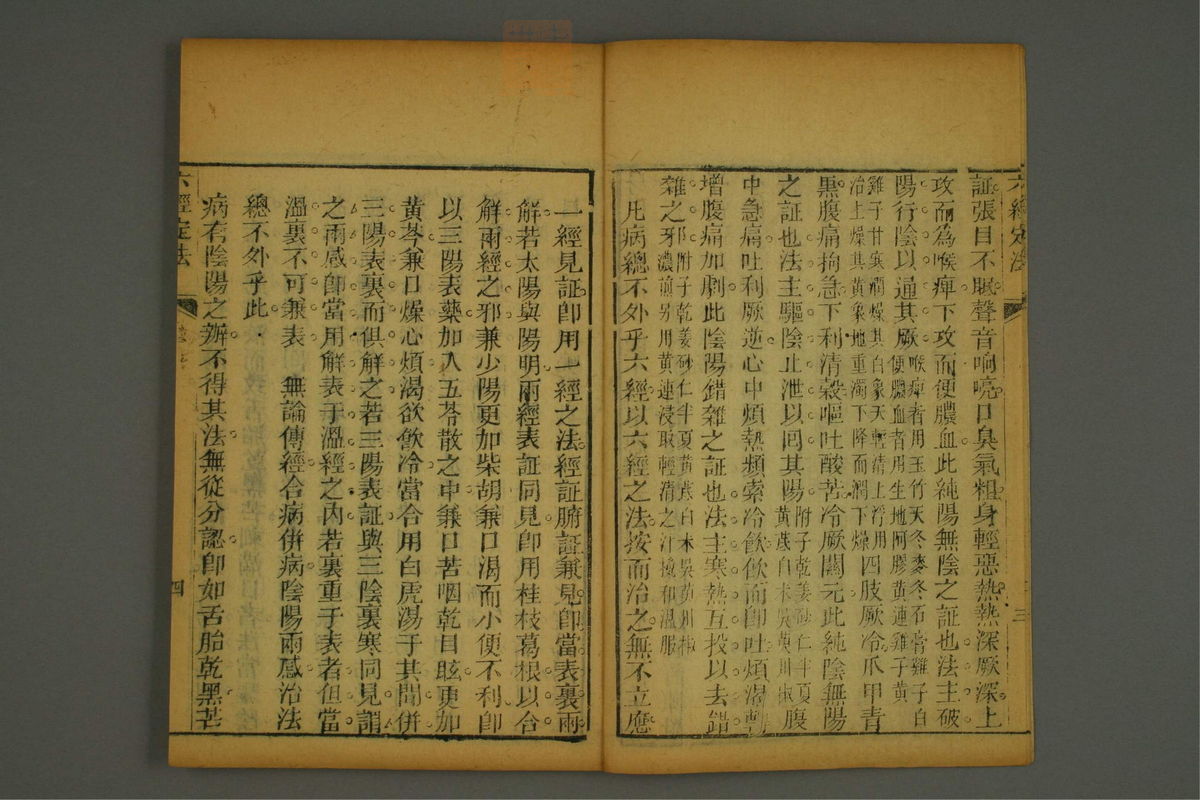 六經定法
三
証張目不瞑聲音响喨口臭氣粗身輕惡熱熱深厥深上
攻而為喉痺下攻而便膿血此純陽無陰之証也法主破
陽行陰以通其厥
喉痺者用玉竹天冬麥冬石膏雞子白
便膿血者用生地阿膠黃連雞子黃
雞子甘寒潤燥其白象天輕清上浮用
治上燥其黃象地重濁下降而潤下燥
四肢厥冷爪甲青
黑腹痛拘急下利清穀嘔吐酸苦冷厥關元此純陰無陽
之証也法主驅陰止泄以回其陽
附子乾姜砂仁半夏
黃蓍白朮吳萸川椒
腹
中急痛吐利厥逆心中煩熱頻索冷飲飲而即吐煩渴轉
增腹痛加劇此陰陽錯雜之証也法主寒熱互投以去錯
雜之邪
附子乾姜砂仁半夏黃蓍白朮吳萸川椒
濃煎另用黃連浸取輕清之汁攙和溫服
凡病總不外乎六經以六經之法按而治之無不立應
一經見証即用一經之法經証腑証兼見即當表裏兩
解若太陽與陽明兩經表証同見即用桂枝葛根以合
解兩經之邪兼少陽更加柴胡兼口渴而小便不利即
以三陽表藥加入五苓散之中兼口苦咽乾目眩更加
黃芩兼口燥心煩渴欲飲冷當合用白虎湯于其間併
三陽表裏而俱解之若三陽表証與三陰裏寒同見謂
之兩感即當用解表于溫經之內若裏重于表者但當
溫裏不可兼表　無論傳經合病併病陰陽兩感治法
總不外乎此
病有陰陽之辦不得其法無從分認即如舌胎乾黑芒
六經定法
四